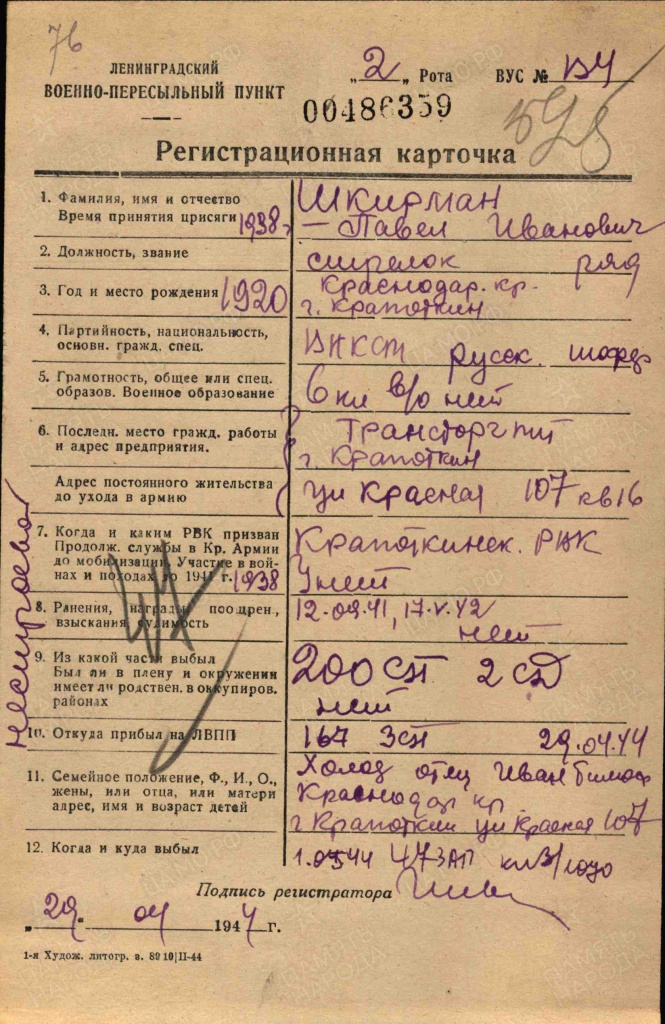 76
ЛЕНИНГРАДСКИЙ
ВОЕННО-ПЕРЕСЫЛЬНЫЙ ПУНКТ
„2„ Рота ВУС №
00486359
Регистрационная карточка
1. Фамилия, имя и отчество Шкирман
Время принятия присяги 1938 Павел Иванович
2. Должность, звание стрелок ряд
3. Год и место рождения 1920 Краснодар. кр.
г. Крапоткин
4. Партийность, национальность,
основн. гражд. спец. ВЛКСМ русск. шофер
5. Грамотность, общее или спец.
образов. Военное образование 6 кл в/о нет
6. Последн. место гражд. работы Трансторгпит
и адрес предприятия. г. Крапоткин
Адрес постоянного жительства
до ухода в армию ул Красная 107 кв 16
7. Когда и каким РВК призван Крапоткинск. РВК
Продолж. службы в Кр. Армии
до мобилизации. Участие в вой-
нах и походах до 1941 г. 1938 нет
8. Ранения, награды, поощрен., 12.09.41, 17.V.42
взыскания, судимость нет
9. Из какой части выбыл 200 СП 2 СД
Был ли в плену и окружении
имеет ли родствен. в оккупиров. нет
районах
10. Откуда прибыл на ЛВПП 167 ЗСП 29.04.44
11. Семейное положение, Ф., И., О., Холост отец Иван Тимоф
жены, или отца, или матери Краснодар кр.
адрес, имя и возраст детей г Крапоткин ул Красная 107
12. Когда и куда выбыл 1.0544 47 ЗАП
Подпись регистратора
„29„ 04 1944 г.
1-я Худож. литогр. з. 8910|II-44
нестроевой